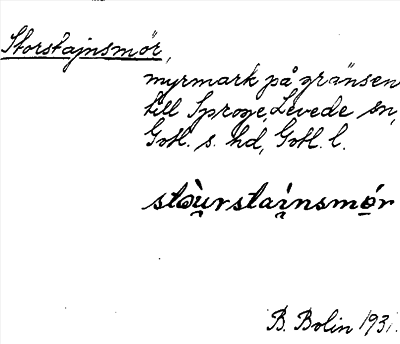 Storstajnsmör,
myrmark på gränsen
till Sproge, Levede sn,
Gotl. s. hd, Gotl. l.
stòu̯rstai̯nsmör
B. Bolin 1931.